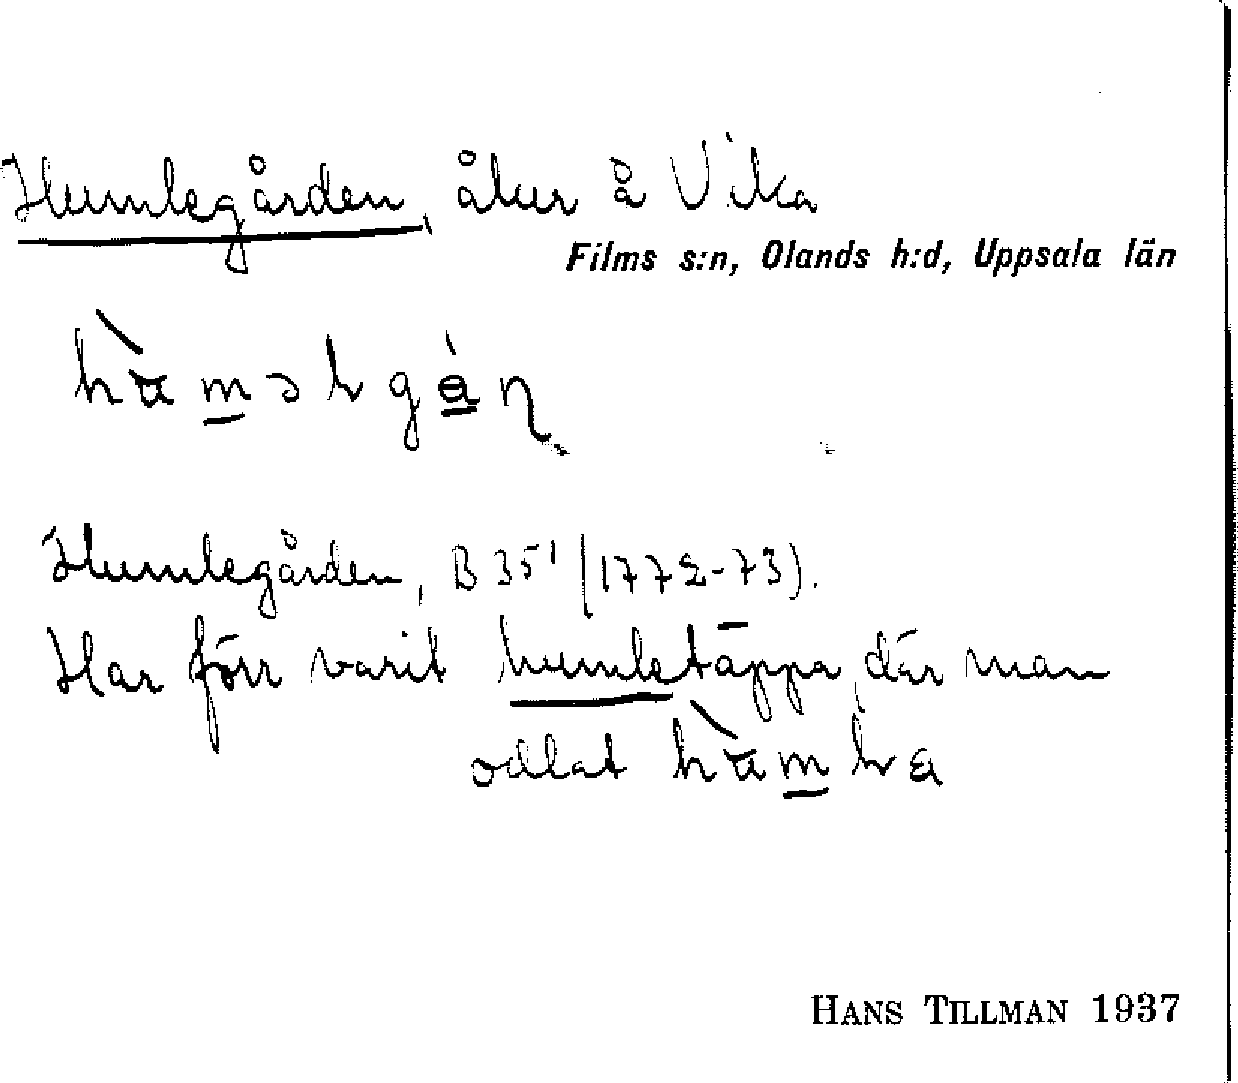 Humlegården, åker å Vika
Films s:n, Olands h:d, Uppsala län
Humlegården, B 35¹ (1772-73).
Har förr varit humletäppa, där man
odlat
HANS TILLMAN 1937